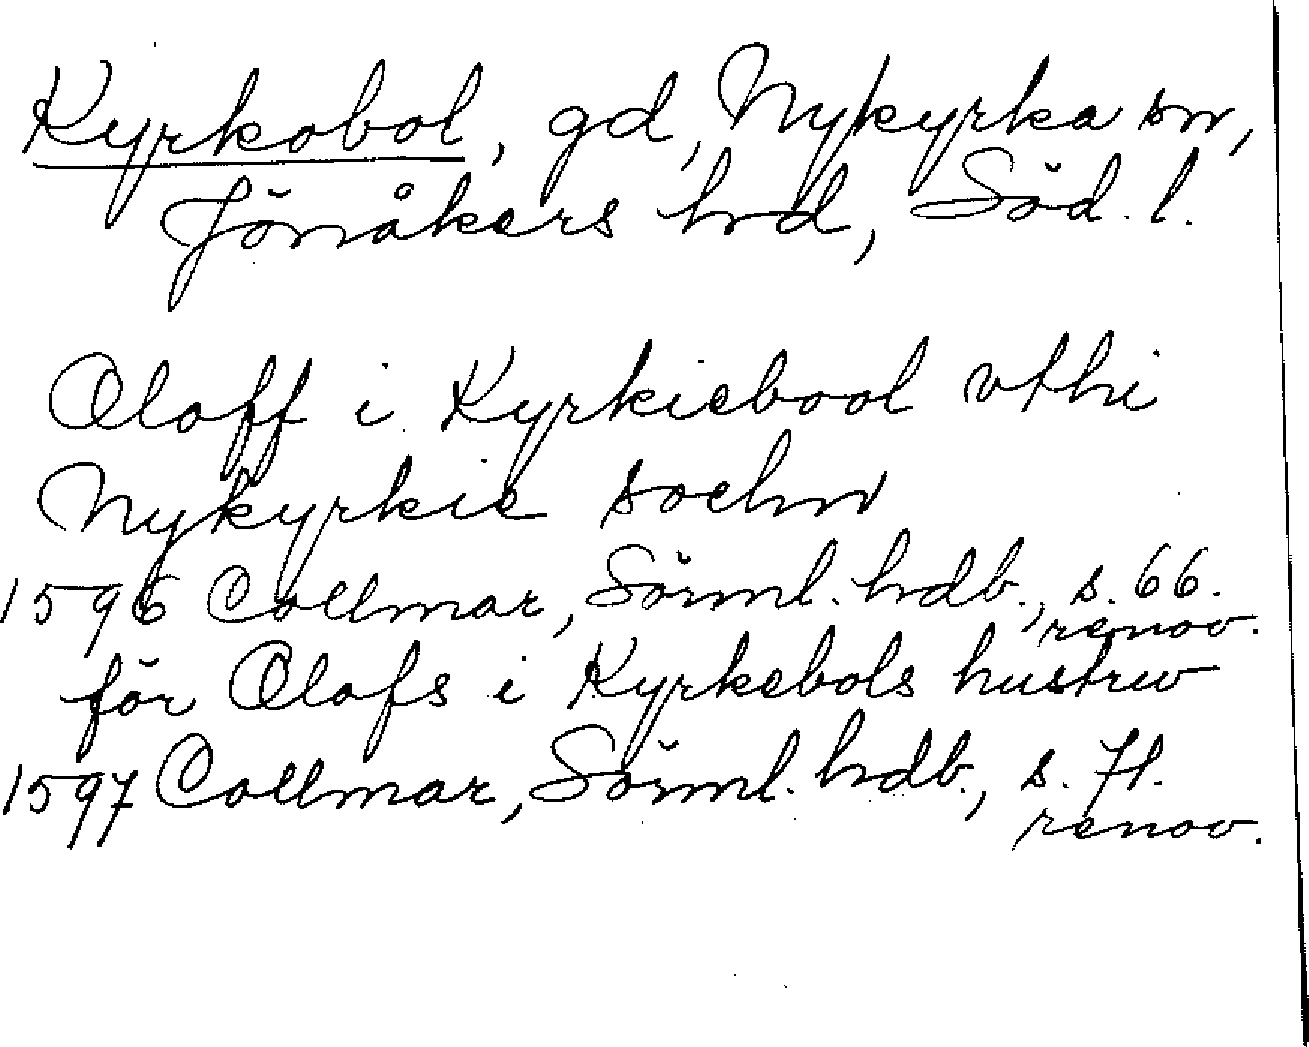 Kyrkobol, gd, Nykyrka sn,
Jönåkers hrd, Söd. l.
Oloff i Kyrkiebool vthi
Nykyrkie sochn
1596 Collmar, Sörml. hdb., s. 66.
renov.
för Olofs i Kyrkebols hustrw
1597 Collmar, Sörml. hdb., s. 71.
renov.